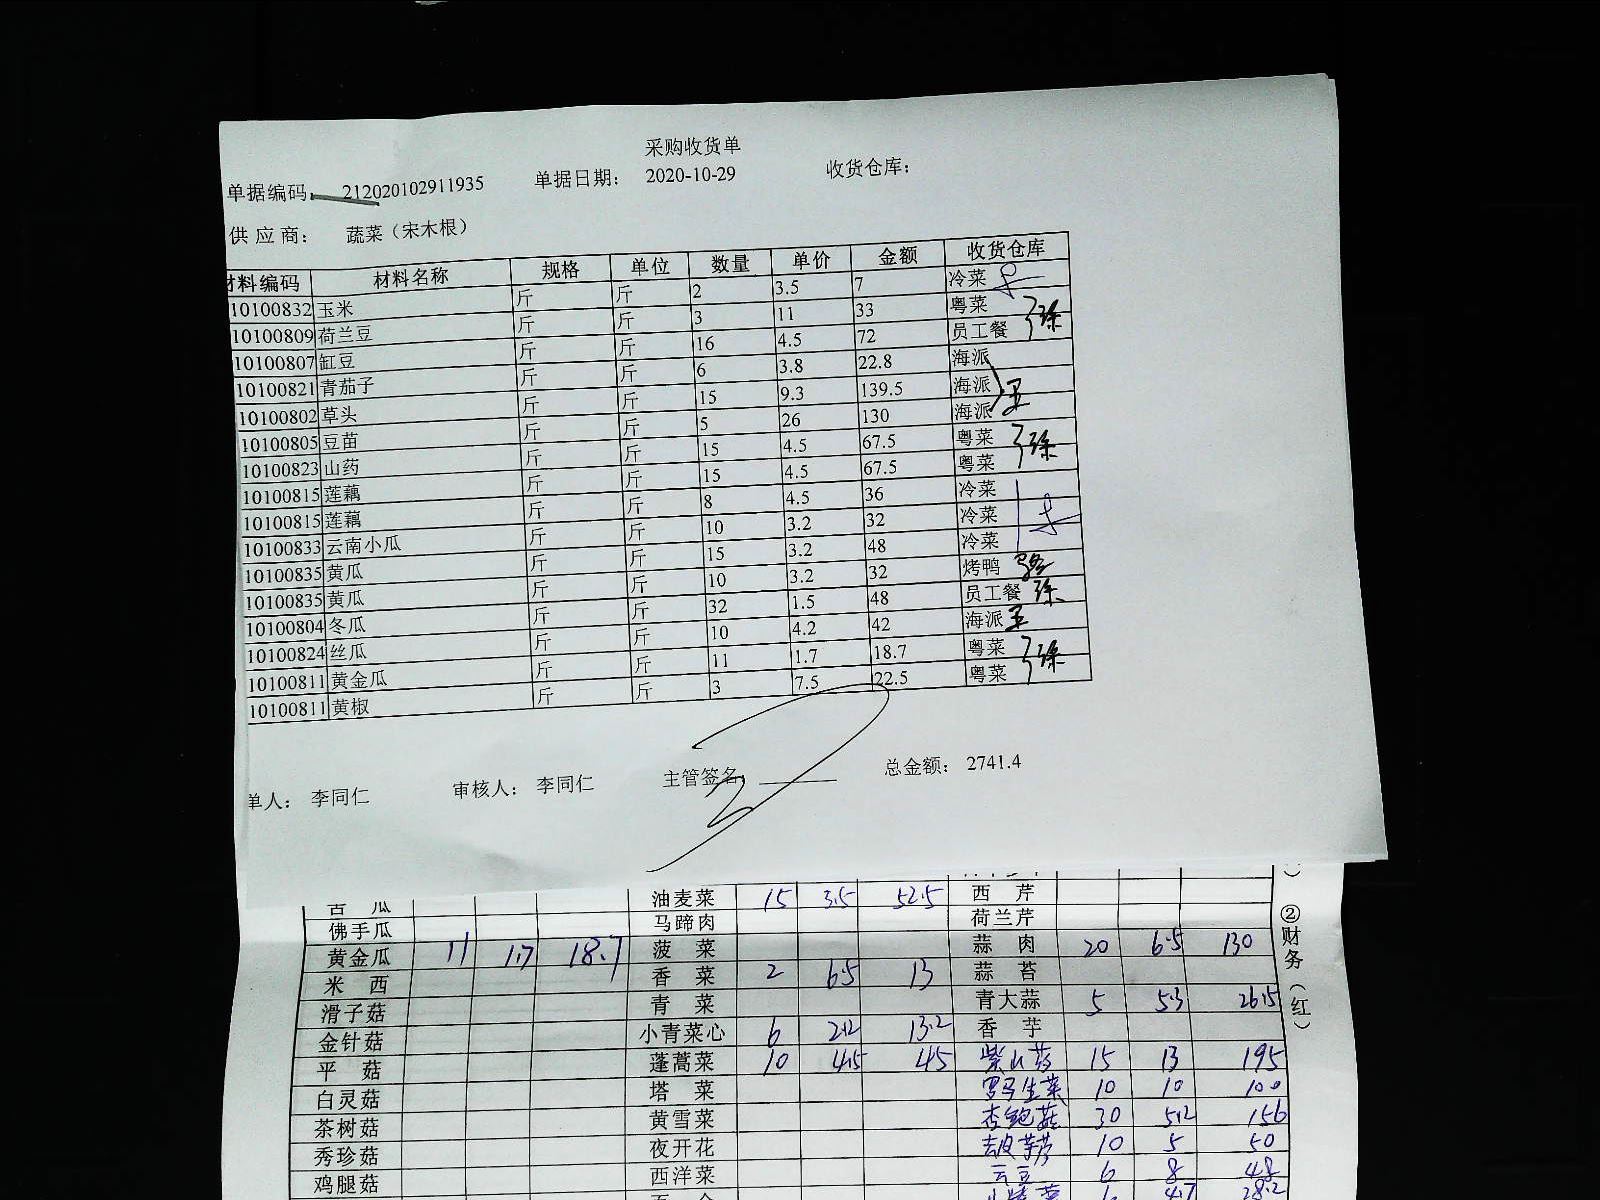 采购收货单
单据编码: 212020102911935 单据日期: 2020-10-29 收货仓库:
供应商: 蔬菜（宋木根）
材料编码 材料名称 规格 单位 数量 单价 金额 收货仓库
10100832 玉米 斤 斤 2 3.5 7 冷菜
10100809 荷兰豆 斤 斤 3 11 33 粤菜
10100807 缸豆 斤 斤 16 4.5 72 员工餐
10100821 青茄子 斤 斤 6 3.8 22.8 海派
10100802 草头 斤 斤 15 9.3 139.5 海派
10100805 豆苗 斤 斤 5 26 130 海派
10100823 山药 斤 斤 15 4.5 67.5 粤菜
10100815 莲藕 斤 斤 15 4.5 67.5 粤菜
10100815 莲藕 斤 斤 8 4.5 36 冷菜
10100833 云南小瓜 斤 斤 10 3.2 32 冷菜
10100835 黄瓜 斤 斤 15 3.2 48 冷菜
10100835 黄瓜 斤 斤 10 3.2 32 烤鸭
10100804 冬瓜 斤 斤 32 1.5 48 员工餐
10100824 丝瓜 斤 斤 10 4.2 42 海派
10100811 黄金瓜 斤 斤 11 1.7 18.7 粤菜
10100811 黄椒 斤 斤 3 7.5 22.5 粤菜
单人: 李同仁 审核人: 李同仁 主管签名: 总金额: 2741.4
苦瓜 油麦菜 15 3.5 52.5 西芹
佛手瓜 马蹄肉 荷兰芹
黄金瓜 11 1.7 18.7 菠菜 蒜肉 20 6.5 130
米西 香菜 2 6.5 13 蒜苔
滑子菇 青菜 青大蒜 5 5.3 26.5
金针菇 小青菜心 6 2.2 13.2 香芋
平菇 蓬蒿菜 10 4.5 45 紫山药 15 13 195
白灵菇 塔菜 罗马生菜 10 10 100
茶树菇 黄雪菜 杏鲍菇 30 5.2 156
秀珍菇 夜开花 10 5 50
鸡腿菇 西洋菜 云豆 6 8 48
4.7 28.2
②财务（红）